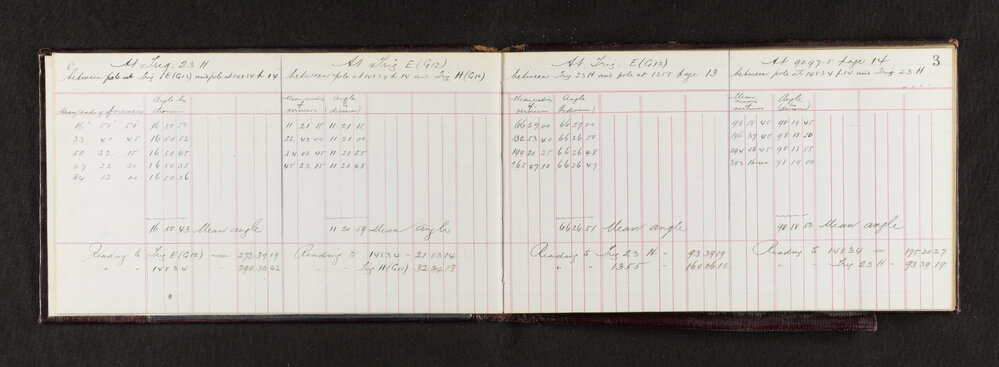 At Trig. 23 H
between pole at Trig E(G12) and pole at 14834 p 14
Mean reading of verniers
Angle by division
16 50 50 16 50 50
33 41 45 16 50 52
50 32 15 16 50 45
67 22 20 16 50 35
84 13 00 16 50 36
16 50 43 Mean angle
Reading to Trig E(G12) — 273 39 19
" " 14834 - 290 30 02
At Trig E(G12)
between pole at 14834 p 14 and Trig H(G10)
Mean reading of verniers
Angle by division
11 21 15 11 21 15
22 42 00 11 21 00
34 02 45 11 20 55
45 23 15 11 20 48
11 20 59 Mean Angle
Reading to 14834 - 21 03 14
" " Trig H(G10) 32 24 13
At Trig. E(G12)
between Trig 23 H and pole at 1355 page 13
Mean reading of verniers
Angle by division
66 27 00 66 27 00
132 53 40 66 26 50
199 20 25 66 26 48
265 47 10 66 26 47
66 26 51 Mean angle
Reading to Trig 23 H - 93 39 19
" " 1355 - 160 06 10
3
At 9097.5 page 14
between pole at 14834 p 14 and Trig 23 H
Mean reading verniers
Angle by division
98 18 45 98 18 45
196 37 40 98 18 50
294 56 45 98 18 55
393 16 00 98 19 00
98 18 52 Mean angle
Reading to 14834 — 195 20 27
" - Trig 23 H - 93 39 19